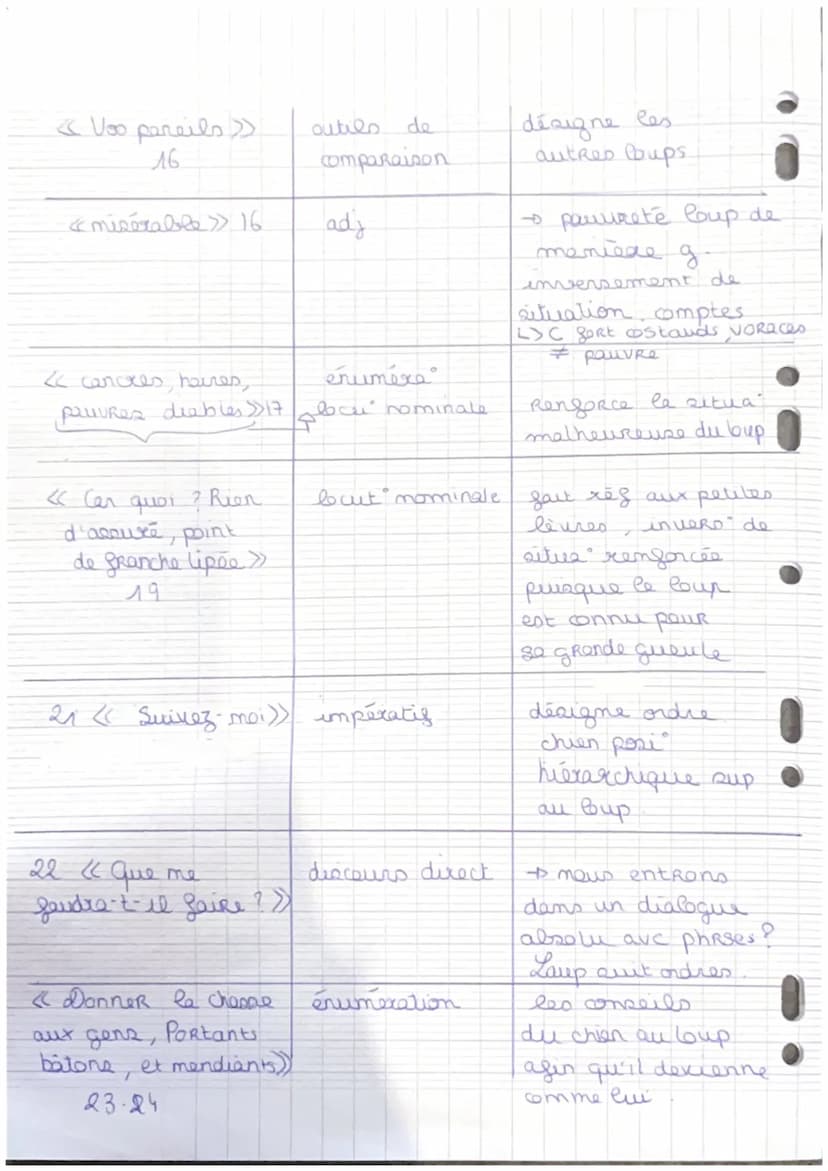 « Vos pareils »
16
outils de
comparaison
désigne les
autres loups
« misérable » 16
adj
→ pauvreté loup de
manière g.
inversement de
situation, comptes
↳ C fort costauds, voraces
≠ pauvre
« cancres, haires,
pauvres diables » 17
énuméra°
locu° nominale
Renforce la situa°
malheureuse du loup
« Car quoi ? Rien
d'assuré, point
de franche lipée »
19
locut° nominale
fait réf aux petites
lèvres, invers° de
situa° renforcée
puisque le loup
est connu pour
sa grande gueule
21 « Suivez-moi »
impératif
désigne ordre
chien posi°
hiérarchique sup
au loup.
22 « Que me
faudra-t-il faire ? »
discours direct
→ nous entrons
dans un dialogue
absolu avc phrses ?
Loup suit ordres.
« Donner la chasse
aux gens, Portants
bâtons, et mendiants »
23-24
énumération
les conseils
du chien au loup
afin qu'il devienne
comme lui.